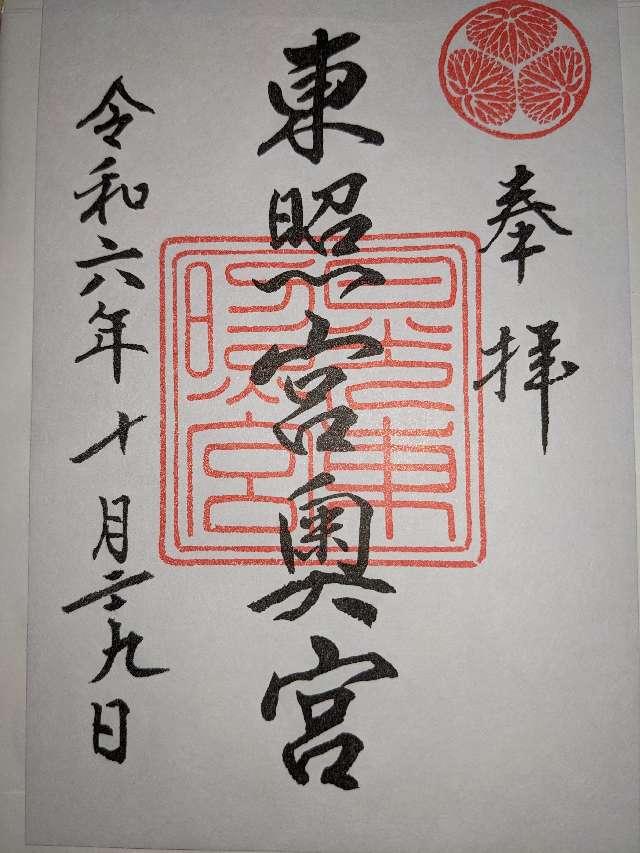 奉拝
東照宮奧宮
日光東
照宮
令和六年十月二十九日